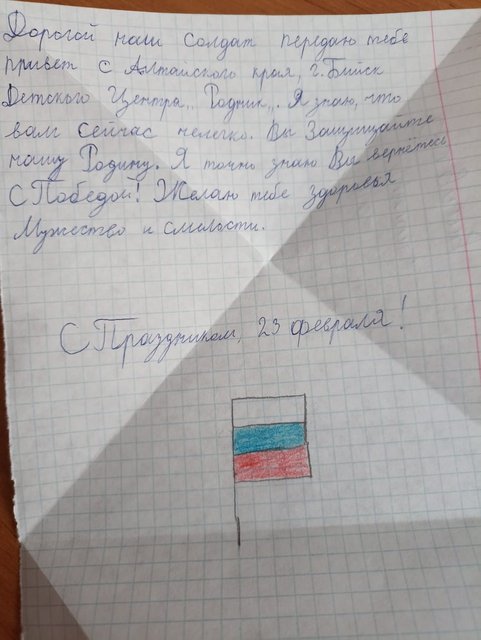 Дорогой наш солдат передаю тебе
привет с Алтайского края, г. Бийск
Детского Центра „Родник„. Я знаю, что
вам сейчас нелегко. Вы Защищайте
нашу Родину. Я точно знаю Вы вернётесь
С Победой! Желаю тебе здоровья
Мужество и смелости.
С Праздником, 23 февраля!